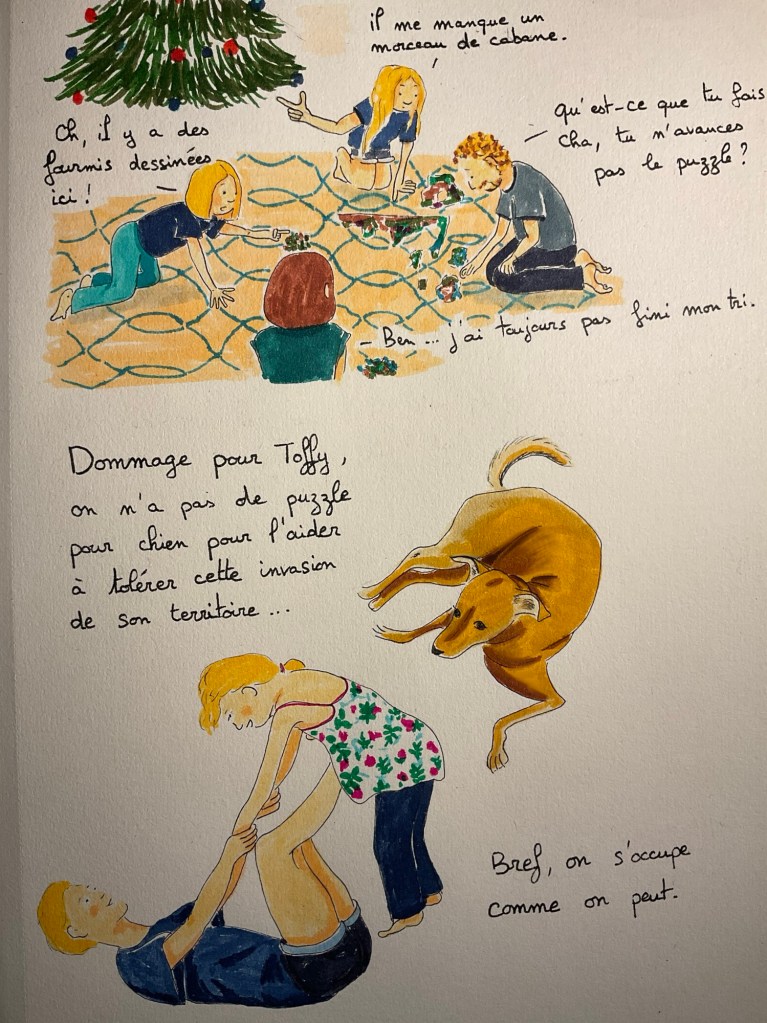 il me manque un
morceau de cabane.
Oh, il y a des
fourmis dessinées
ici !
qu'est-ce que tu fais
Cha, tu n'avances
pas le puzzle ?
- Ben ... j'ai toujours pas fini mon tri.
Dommage pour Toffy,
on n'a pas de puzzle
pour chien pour l'aider
à tolérer cette invasion
de son territoire ...
Bref, on s'occupe
comme on peut.